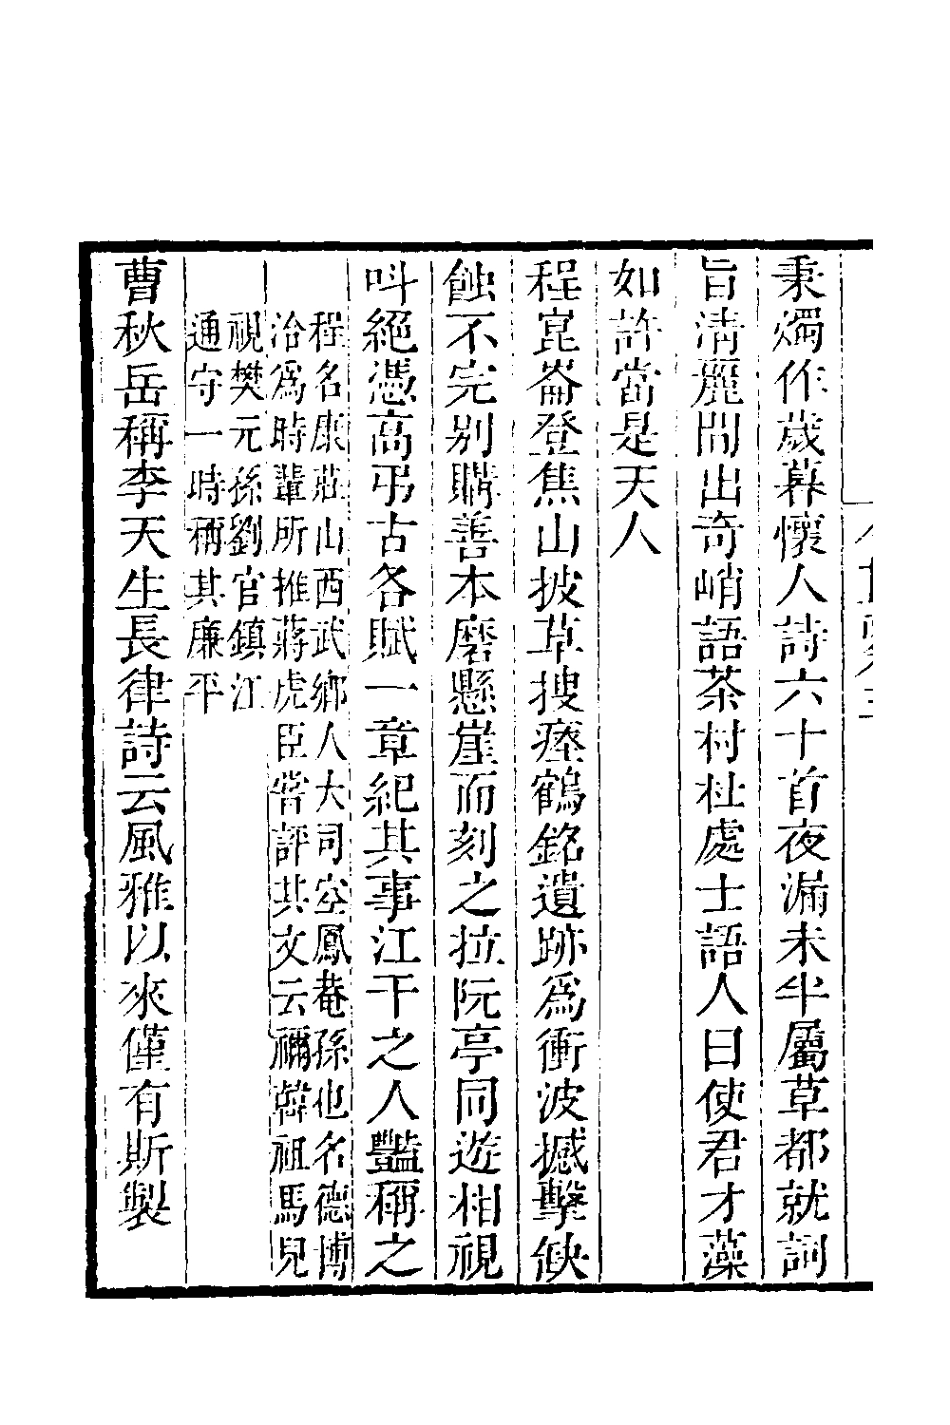 秉燭作歲暮懷人詩六十首夜漏未半屬草都就詞
旨淸麗間出奇峭語茶村杜處士語人曰使君才藻
如許當是天人
程崑崙登焦山披草搜瘞鶴銘遺跡爲衝波撼擊缺
蝕不完別購善本磨懸崖而刻之拉阮亭同遊相視
叫絕憑高弔古各賦一章紀其事江干之人豔稱之
程名康莊山西武鄉人大司空鳳菴孫也名德博
洽爲時輩所推蔣虎臣嘗評其文云禰韓祖馬兒
視樊元孫劉官鎮江
通守一時稱其廉平
曹秋岳稱李天生長律詩云風雅以來僅有斯製